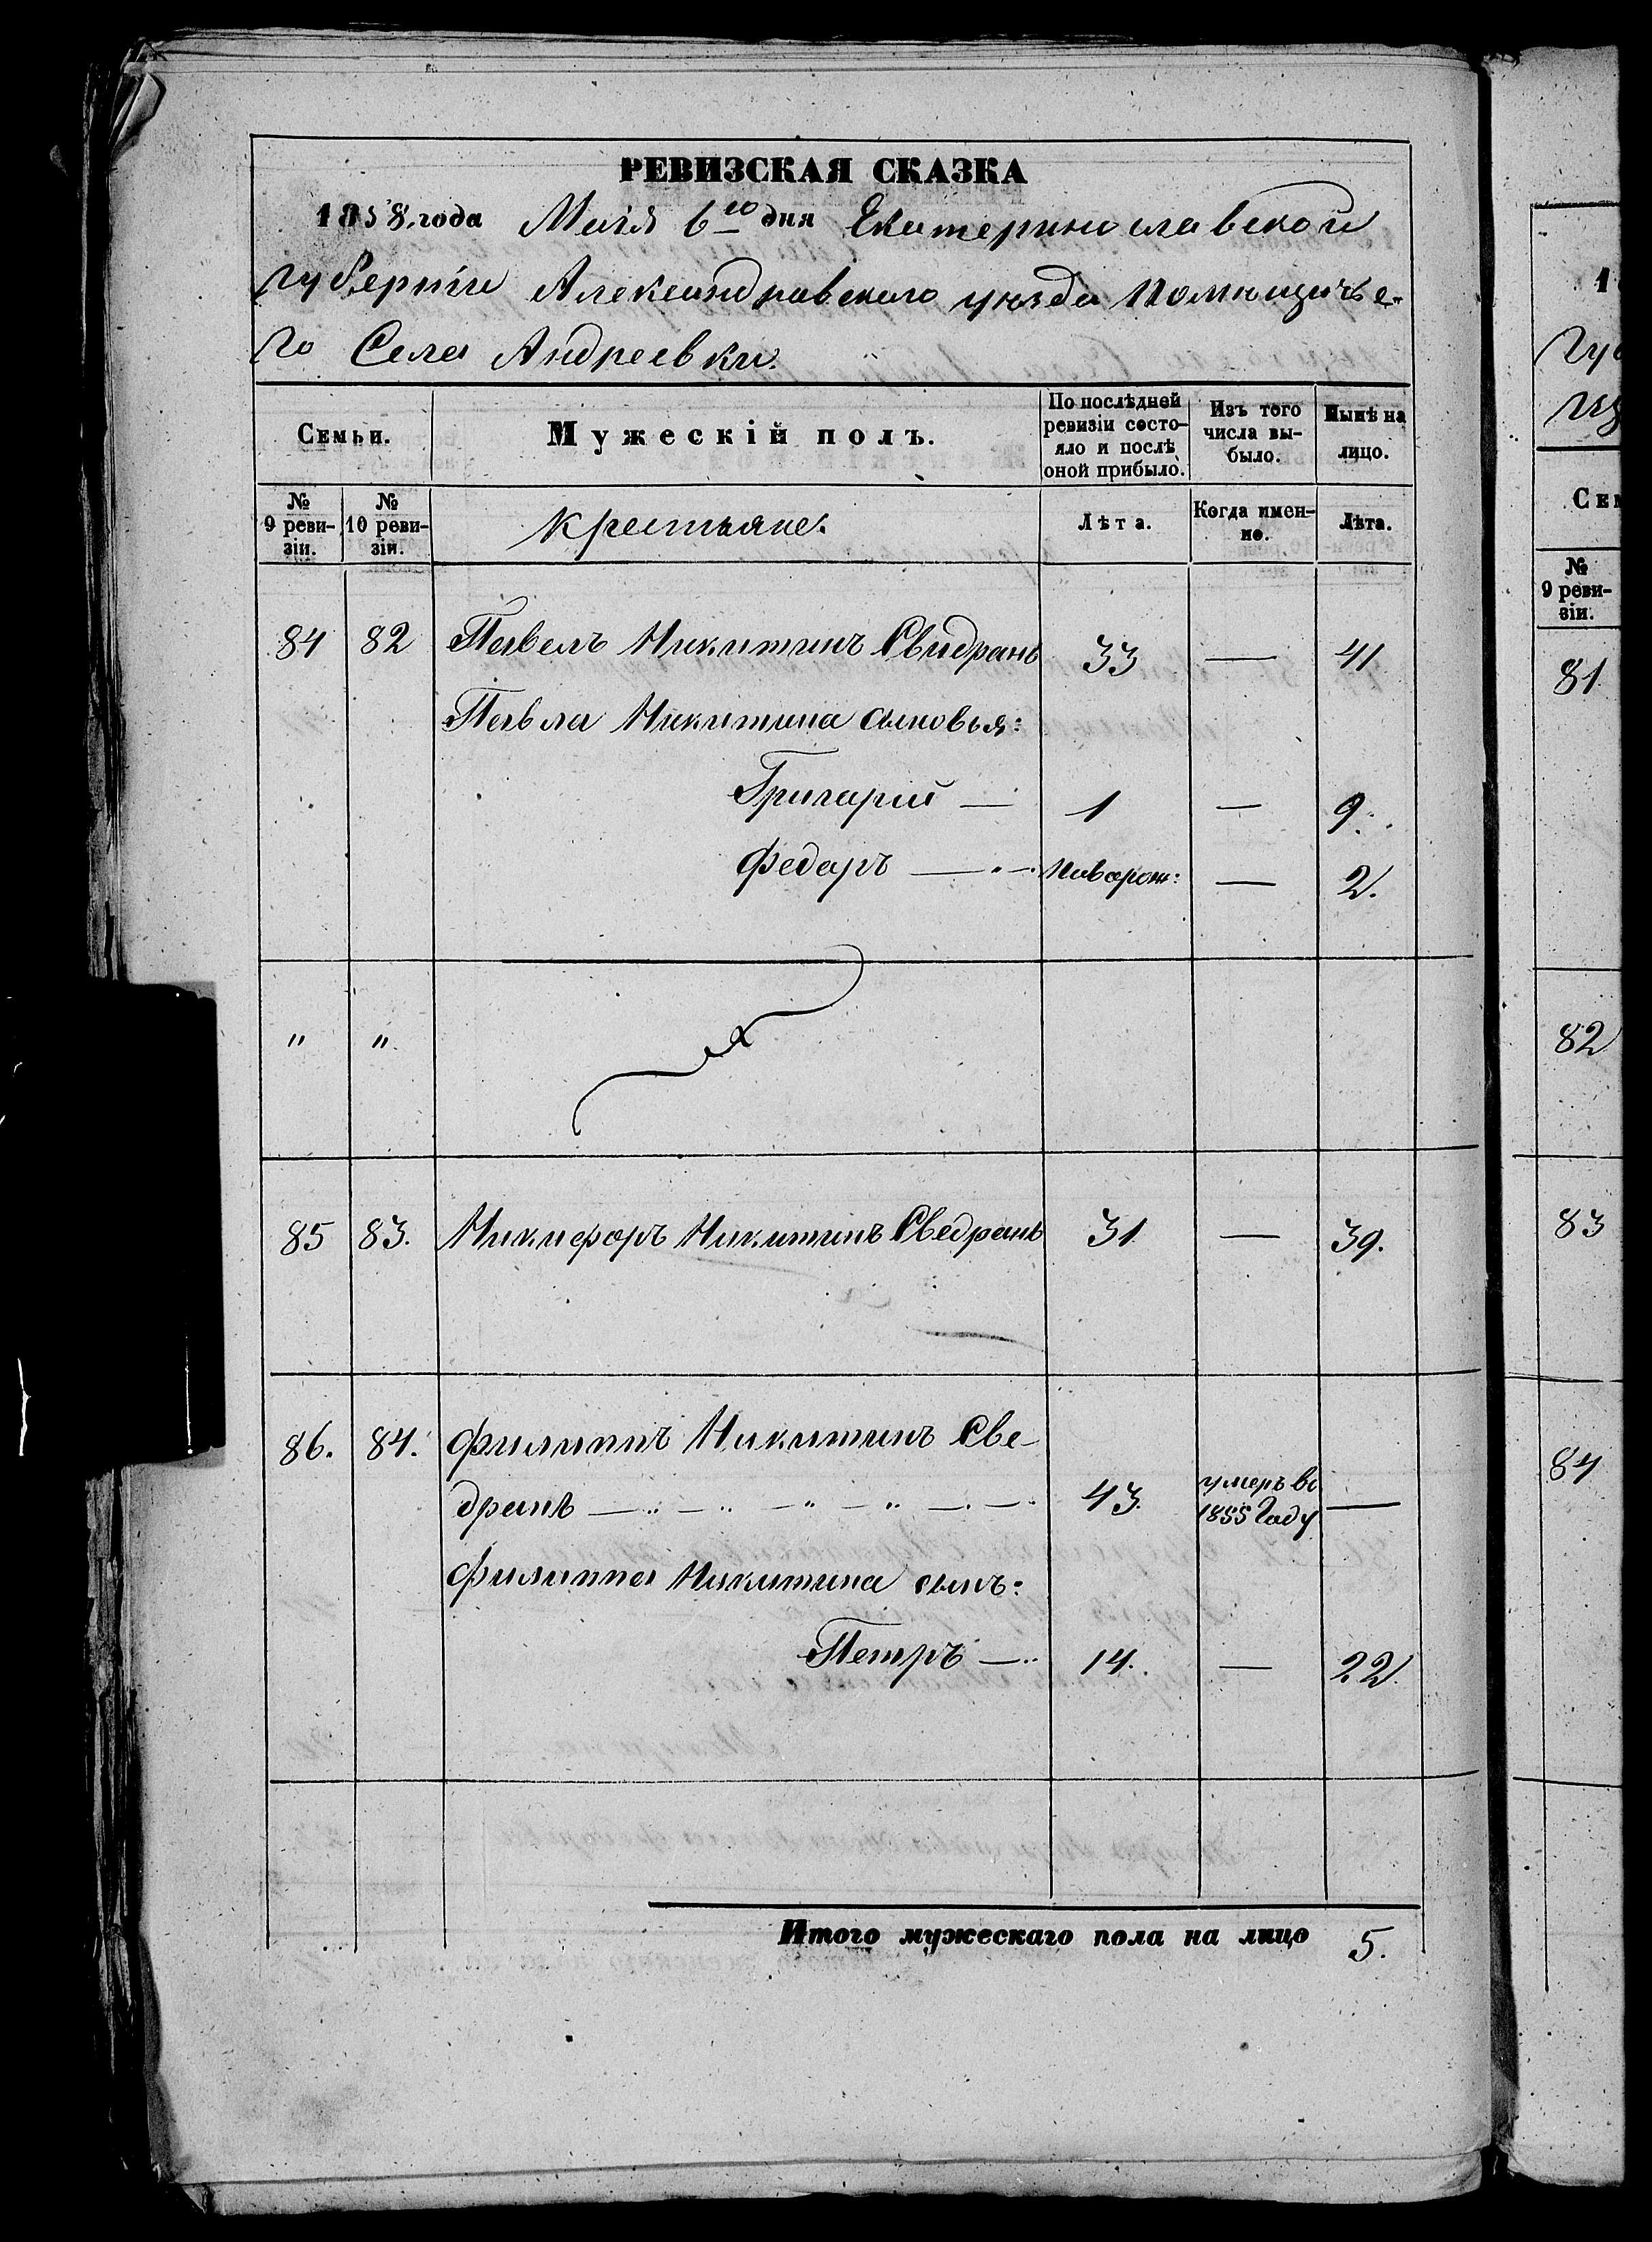 РЕВИЗСКАЯ СКАЗКА
1858. года Маія 6го дня Екатеринославской
губерніи Александровского уѣзда помѣщичье-
го Села Андреевки.
Семьи.
Мужескій полъ.
По послѣдней ревизіи состо-
яло и послѣ
оной прибыло.
Изъ того
числа вы-
было.
Нынѣ на
лицо.
№
9 реви-
зіи.
№
10 реви-
зіи.
Крестьяне.
Лѣта.
Когда имен-
но.
Лѣта.
84 82 Павелъ Никитинъ Свидрань 33 — 41
Павла Никитина сыновья:
Григорий — 1 — 9.
Федоръ — новорож: — 2.
" "
85 83. Никифоръ Никитинъ Сведрань 31 — 39.
86. 84. Филиппъ Никитинъ Све-
дрань — 43. умеръ въ
1855 Году —
Филиппа Никитина сынъ:
Петръ — 14. — 22.
Итого мужескаго пола на лицо 5.
1
Гу
Сем
№
9 реви-
зіи.
81
82
83
84